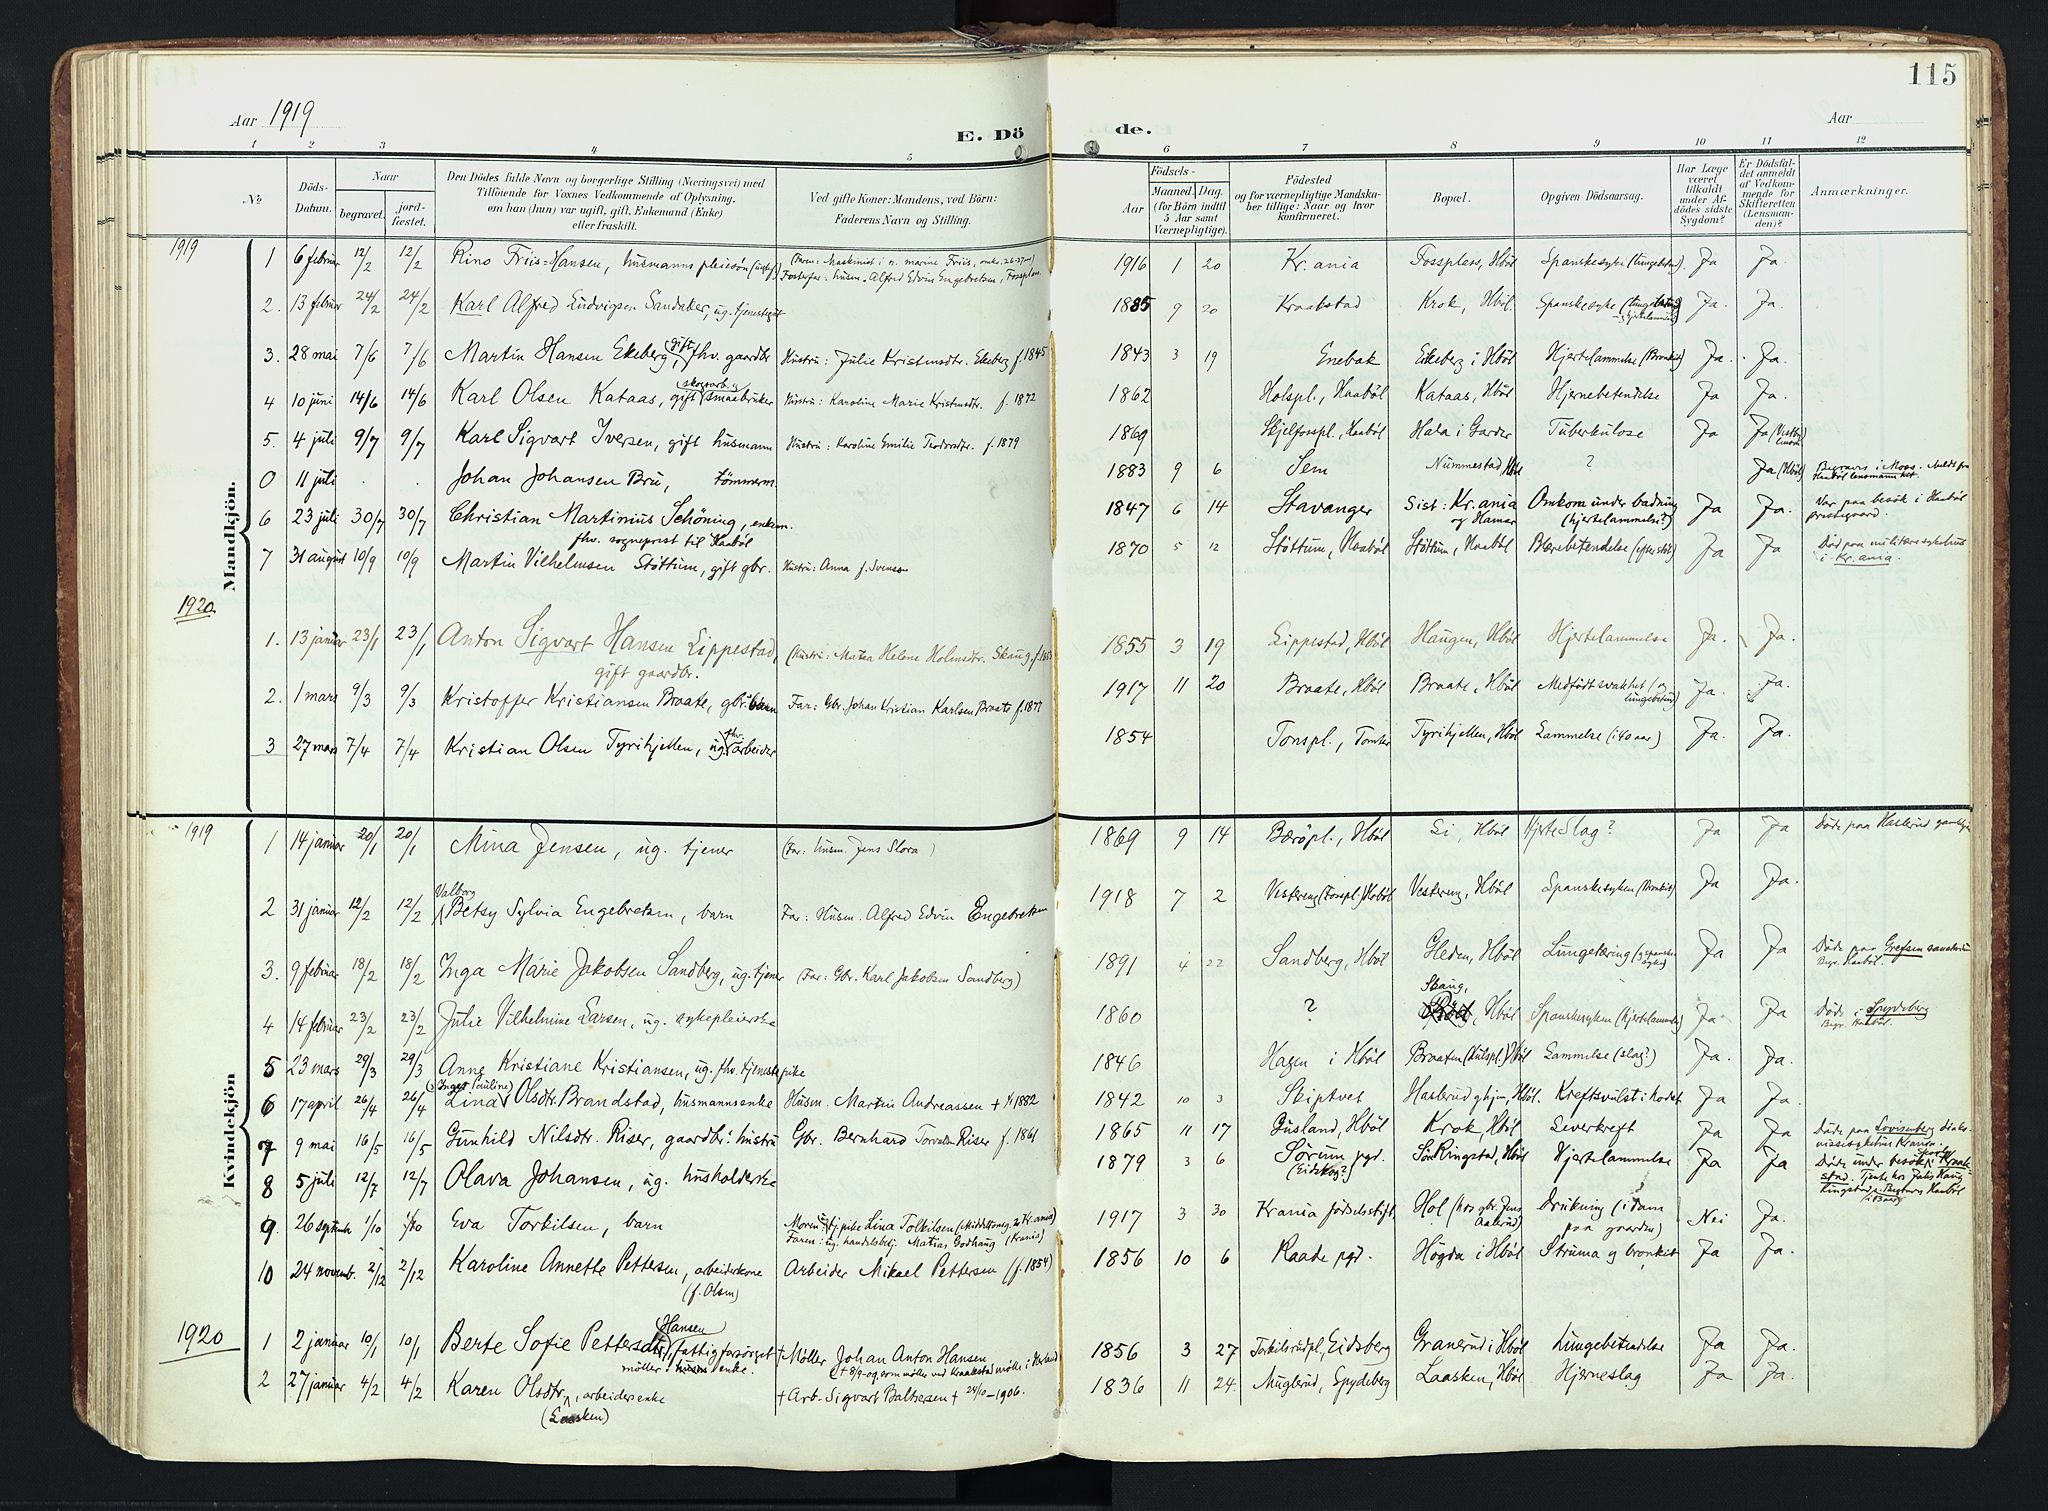 115
Aar 1919
E. Dö de.
Aar
1 2 3 4 5 6 7 8 9 10 11 12
No. Döds-Datum. Naar begravet. jord-fæstet. Den Dödes fulde Navn og borgerlige Stilling (Næringsvei) med Tilföiende for Voxnes Vedkommende af Oplysning, om han (hun) var ugift, gift, Enkemand (Enke) eller fraskilt. Ved gifte Koner: Mandens, ved Börn: Faderens Navn og Stilling. Födsels- Aar Maaned. Dag. (for Börn indtil 5 Aar samt Værnepligtige). Födested og for værnepligtige Mandskaber tillige: Naar og hvor konfirmeret. Bopæl. Opgiven Dödsaarsag. Har Læge været tilkaldt under Afdödes sidste Sygdom? Er Dödsfaldet anmeldt af Vedkommende for Skifteretten (Lensmanden)? Anmærkninger.
Mandkjön.
1919
1 6 februar 12/2 12/2 Rino Friis-Hansen, husmanns pleiesön 1916 1 20 Kr.ania Fosspless, Hböl Spanskesyke (lungebetend.) Ja Ja.
Fosterfar: husm. Alfred Edvin Engebretsen, Fossplass
2. 13 februar 24/2 24/2 Karl Alfred Ludvigsen Sandaker, ug. tjenestegut 1885 9 20 Kraakstad Krok, Hböl Spanskesyke Ja. Ja.
3. 28 mai 7/6 7/6 Martin Hansen Ekeberg, gift fhv. gaardbr Hustru: Julie Kristinsdtr. Ekeberg f. 1845 1843 3 19 Enebak Ekeberg i Hböl Hjertelammelse (Bronkit) Ja. Ja.
4 10 juni 14/6 14/6 Karl Olsen Kataas, gift skogsarb. og smaabruker Hustru: Karoline Marie Kristinsdtr. f. 1872 1862 Holspl., Haaböl Kataas, Hböl Hjernebetendelse Ja Ja.
5. 4 juli 9/7 9/7 Karl Sigvart Iversen, gift husmann Hustru: Karoline Emilie Teodorsdtr. f. 1879 1869 Skjelfosspl., Haaböl Hala i Garder Tuberkulose Ja Ja
0 11 juli . . Johan Johansen Bru, tömmerm. 1883 9 6 Sem Nummestad, Hböl ? Ja (Hböl) Begravs i Moss. Meldt fra Haaböl lensmannsktr.
6 23 juli 30/7 30/7 Christian Martinius Schöning, enkem. 1847 6 14 Stavanger Sist: Kr.ania og Hamar Omkom under badning (hjertelammelse?) Ja Ja. Var paa besök i Haaböl prestegaard.
fhv. sogneprest til Haaböl
7 31 august 10/9 10/9 Martin Vilhelmsen Stöttum, gift gbr. Hustru: Anna f. Svensson 1870 5 12 Stöttum, Haaböl Stöttum, Haaböl Blærebetendelse (efter stöt) Ja Ja Död paa militære sykehus i Kr.ania.
1920
1. 13 januar 23/1 23/1 Anton Sigvart Hansen Lippestad, (Hustru: Matea Helene Holmsdtr. Skaug, 1855 3 19 Lippestad, Hböl Haugen, Hböl Hjertelammelse Ja. Ja.
gift gaardbr.
2. 1 mars 9/3 9/3 Kristoffer Kristiansen Braate, gbr. barn Far: Gbr. Johan Kristian Karlsen Braate f. 1877 1917 11 20 Braate, Hböl Braate, Hböl Medfödt svakhet (og lungebetend) Ja. Ja.
3 27 mars 7/4 7/4 Kristian Olsen Tyrihjellen, ug. fhv. arbeider 1854 Tonspl., Tomter Tyrihjellen, Hböl Lammelse (i 40 aar) Ja. Ja.
Kvindekjön
1919
1 14 januar 20/1 20/1 Mina Jensen, ug. tjener (Far: husm. Jens Slora) 1869 9 14 Bæröpl., Hböl Li, Hböl Hjerteslag? Ja Ja Döde paa Haslerud gamlehj.
2 31 januar 12/2 12/2 Valborg Betsy Sylvia Engebretsen, barn Far: Husm. Alfred Edvin Engebretsen 1918 7 2 Vestereng (Fosspl.) Haaböl Vestereng, Hböl Spanskesyken (Bronkit) Ja Ja.
3. 9 februar 18/2 18/2 Inga Marie Jakobsen Sandberg, ug. tjener (Far: Gbr. Karl Jakobsen Sandberg) 1891 4 22 Sandberg, Hböl Gleden, Hböl Lungetæring (og spanskesyke) Ja Ja Döde paa Grefsen sanatorium Begr. Haaböl.
4 14 februar 23/2 23/2 Julie Vilhelmine Larsen, ug. sykepleierske 1860 ? Skaug, Hböl Spanskesyken (hjertelammelse) Ja Ja Döde i Spydeberg Begr. Haaböl.
5 23 mars 29/3 29/3 Anne Kristiane Kristiansen, ug. fhv. tjenestepike 1846 Hagen i Hböl Braaten (Hulspl.) Hböl Lammelse (slag?) Ja. Ja.
6 17 april 26/4 26/4 Lina (Inger Pauline) Olsdtr. Brandstad, husmannsenke Husm. Martin Andreassen + 1882 1842 10 3 Skiptvet Haslerud g.hjem, Hböl. Kreftsvulst i hodet Ja Ja.
7 9 mai 16/5 16/5 Gunhild Nilsdtr. Riser, gaardbr. hustru Gbr. Bernhard Torvaldsen Riser f. 1861 1865 11 17 Gusland, Hböl Krok, Hböl Leverkreft Ja Ja. Döde paa Lovisenberg diakonissesykehus Kr.ania.
8 5 juli 12/7 12/7 Olava Johansen, ug. husholderske 1879 3 6 Sörum pgd. (Eidskog?) Sör Ringstad, Hböl Hjertelammelse Ja Ja Döde under besök
9. 26 septemb 1/10 1/10 Eva Torkilsen, barn Moren: tj. pike Lina Torkilsen 1917 3 30 Kr.ania födselsstift. Hol (hos gbr. Jens Aalerud) Drukning (i dam paa gaarden) Nei Ja.
Faren: ug. handelsbetj. Matias Godhaug (Kr.ania)
10 24 novemb. 2/12 2/12 Karoline Annette Pettersen, arbeiderkone (f. Olsen) Arbeider Mikael Pettersen (f. 1854) 1856 10 6 Raade pgd. Högda i Hböl Struma og bronkit Ja Ja.
1920
1 2 januar 10/1 10/1 Berte Sofie Pettersdtr. Hansen, fattigforsörget + Møller Johan Anton Hansen 1856 3 27 Torkilsrudpl., Eidsberg Granerud i Hböl Lungebetendelse Ja Ja
møller enke.
2 27 januar 4/2 4/2 Karen Olsdtr. (Laasken), arbeiderenke + Arb. Sigvart Baltsersen + 24/10-1906. 1836 11 24. Muglerud, Spydeberg Laasken, Hböl Hjerneslag Ja Ja.